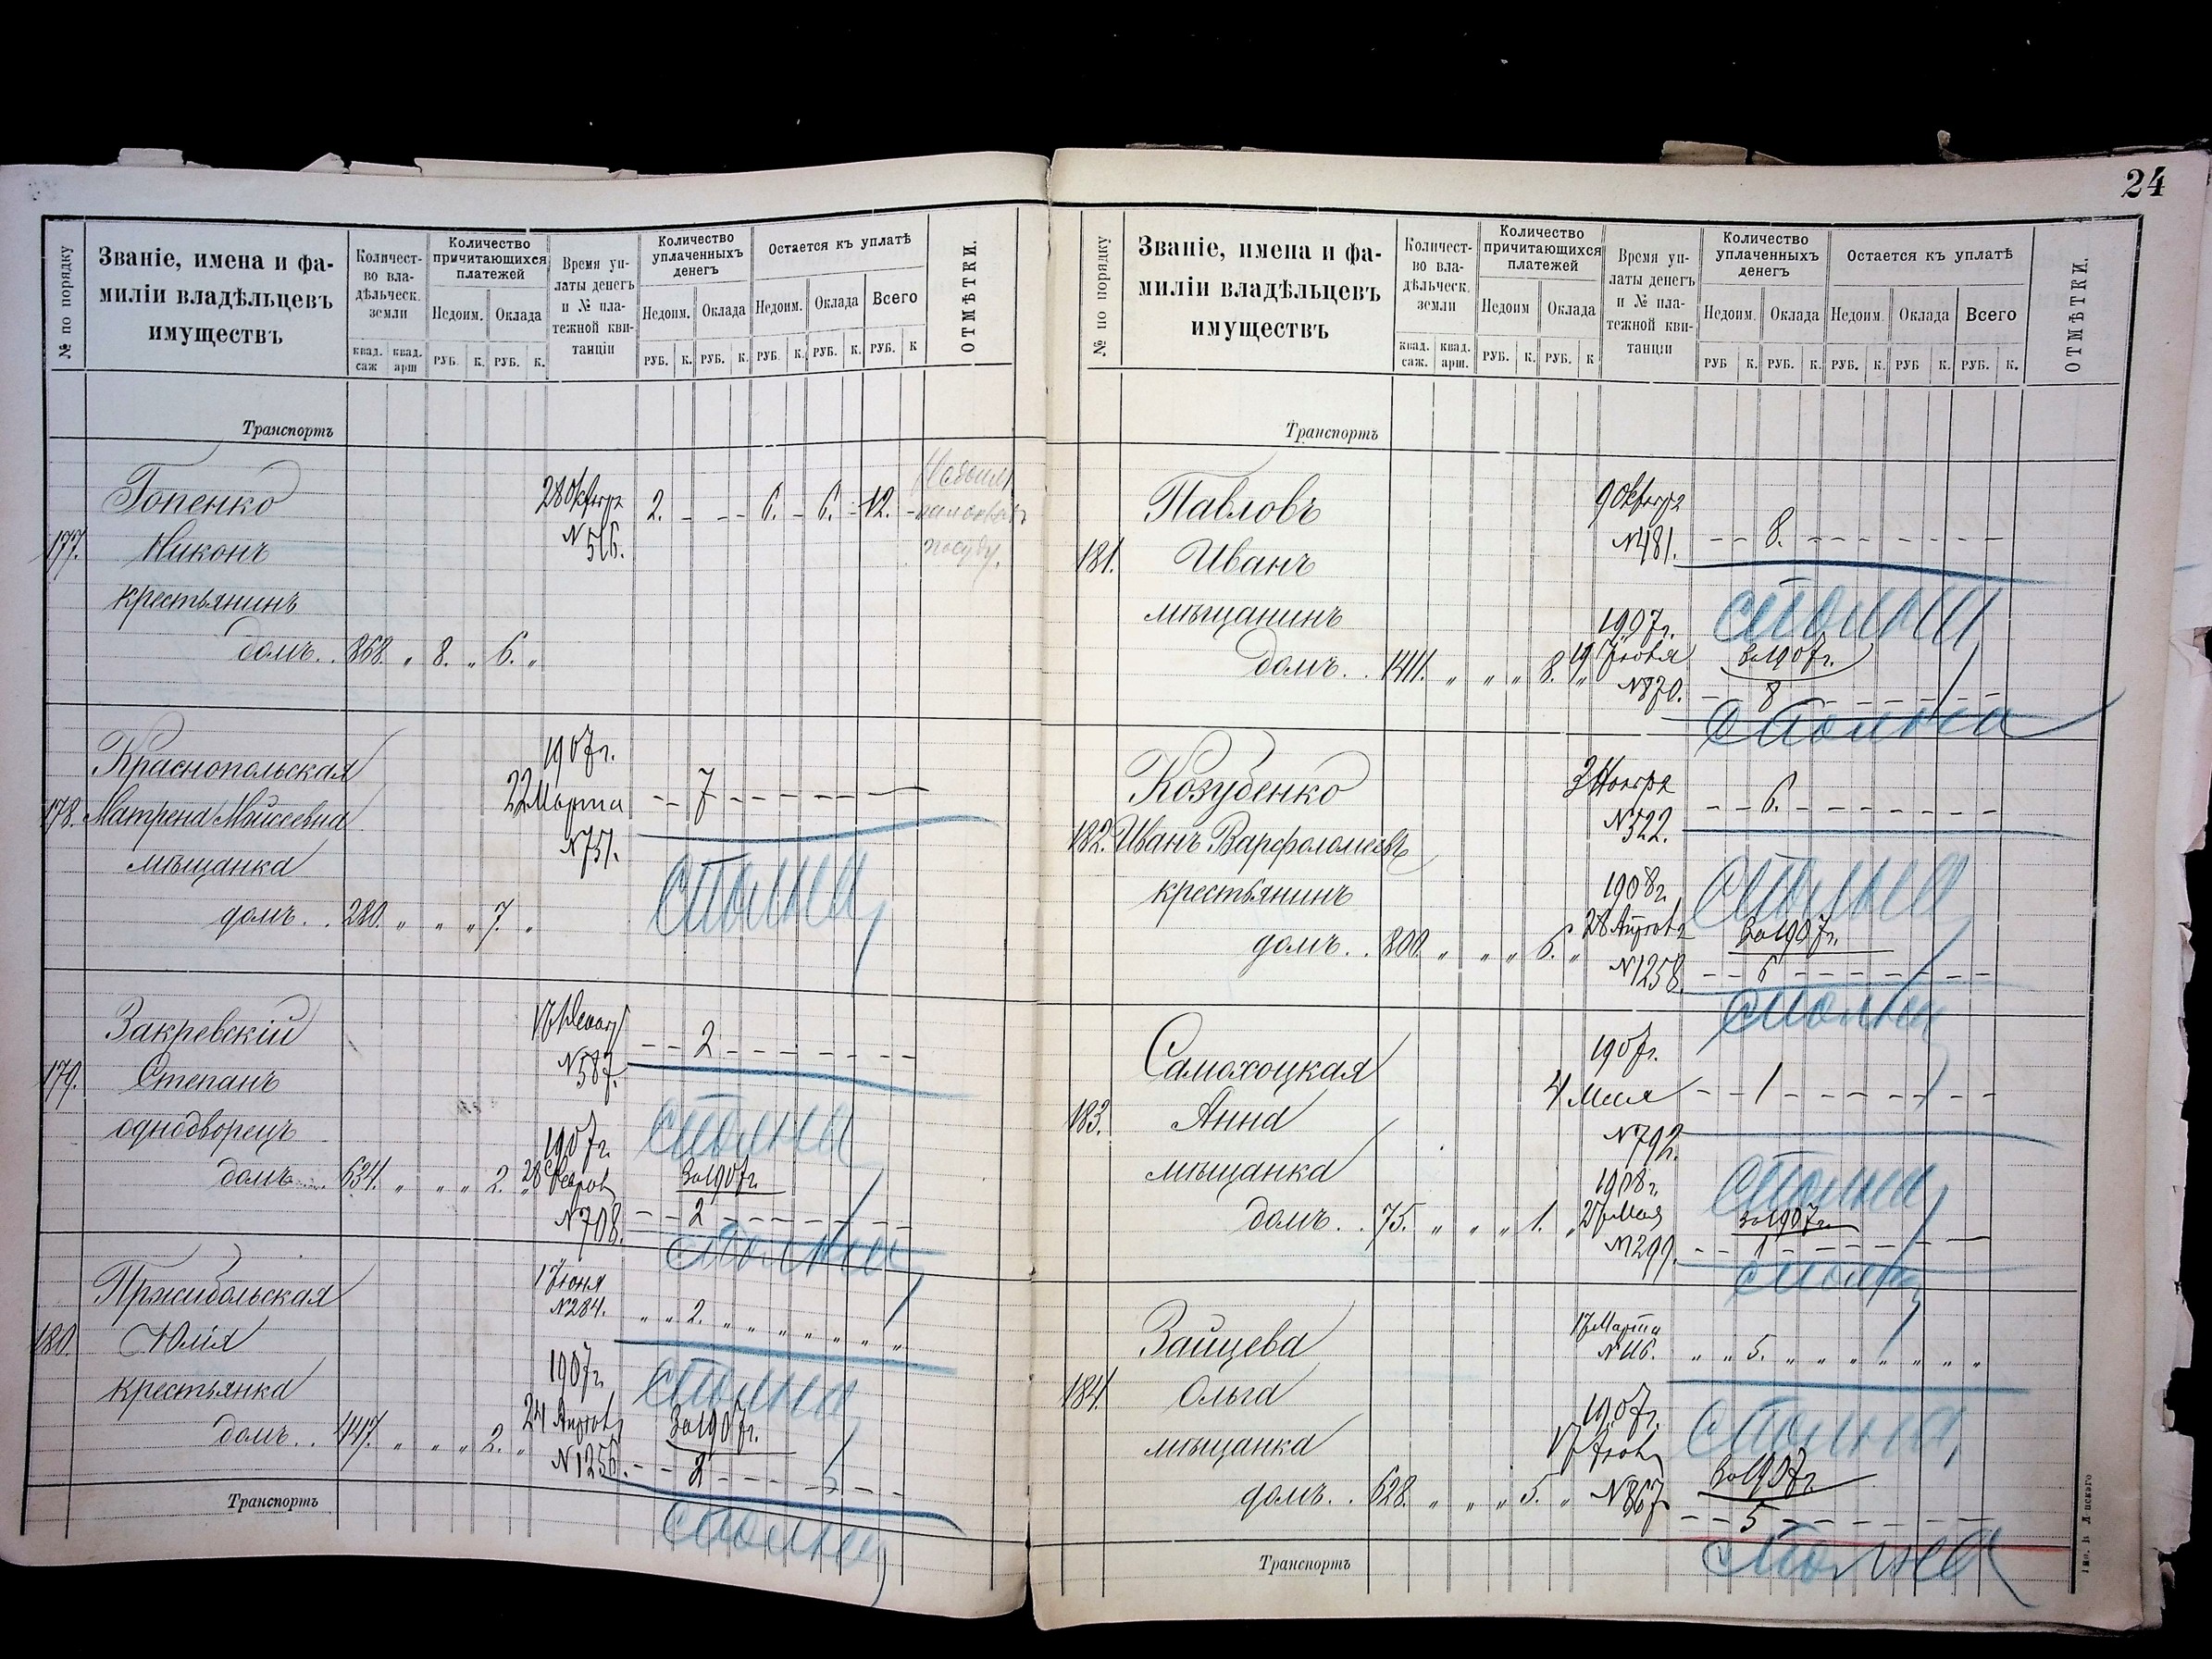 24
№ по порядку
Званіе, имена и фа-
миліи владѣльцевъ
имуществъ
Количест-
во вла-
дѣльческ.
земли
квад. саж
квад. арш
Количество
причитающихся
платежей
Недоим.
Оклада
РУБ. К. РУБ. К.
Время уп-
латы денегъ
и № пла-
тежной кви-
танціи
Количество
уплаченныхъ
денегъ
Недоим. Оклада
РУБ. К. РУБ. К.
Остается къ уплатѣ
Недоим. Оклада Всего
РУБ. К. РУБ. К. РУБ. К
ОТМѢТКИ.
Транспортъ
Гопенко
177. Никонъ
крестьянинъ
домъ.. 868. „ 8. „ 6. „
28 Октября
№ 516.
2. - - - 6. - 6. - 12. -
посуду.
Краснопольская
178. Матрена Мойсеевна
мѣщанка
домъ.. 280. „ „ „ 7. „
1907г.
22 Марта
№ 751.
- - 7 - - - - - -
сполна
Закревскій
179. Степанъ
однодворецъ
домъ.... 634. „ „ „ 2. „
№ 587.
- - 2 - - - - - - -
сполна
1907г.
28 Февраля
№ 708.
За 1907г.
- - 2 - - - - - -
сполна
Пржибольская
180. Юлія
крестьянка
домъ.. 447. „ „ „ 2. „
1 Іюня
№ 284.
„ „ 2. „ „ „ „ „ „ „
сполна
1907г.
№ 1256.
За 1907г.
- - 2 - - - - - -
сполна
Транспортъ
№ по порядку
Званіе, имена и фа-
миліи владѣльцевъ
имуществъ
Количест-
во вла-
дѣльческ.
земли
квад. саж.
квад. арш.
Количество
причитающихся
платежей
Недоим
Оклада
РУБ. К. РУБ. К
Время уп-
латы денегъ
и № пла-
тежной кви-
танціи
Количество
уплаченныхъ
денегъ
Недоим. Оклада
РУБ К. РУБ. К.
Остается къ уплатѣ
Недоим. Оклада Всего
РУБ. К. РУБ К. РУБ. К.
ОТМѢТКИ.
Транспортъ
Павловъ
181. Иванъ
мѣщанинъ
домъ.. 1411. „ „ „ 8. „
9 Октября
№ 481.
- - 8. - - - - - - -
сполна
1907г.
№ 870.
За 1907г.
- - 8 - - - - - -
сполна
Козубенко
182. Иванъ Варфоломеевъ
крестьянинъ
домъ.. 800. „ „ „ 6. „
3 Ноября
№ 522.
- - 6. - - - - - - -
сполна
1908г.
№ 1258.
За 1907г.
- - 6 - - - - - - -
сполна
Самохоцкая
183. Анна
мѣщанка
домъ.. 75. „ „ „ 1. „
1907г.
4 Мая
№ 792.
- - 1 - - - - - - -
сполна
1908г.
№ 1299.
За 1907г.
- - 1 - - - - - -
сполна
Зайцева
184. Ольга
мѣщанка
домъ.. 628. „ „ „ 5. „
17 Марта
№ 116.
„ „ 5. „ „ „ „ „ „ „
сполна
1907г.
№ 867
За 1907г.
- - 5 - - - - - - -
сполна
Транспортъ